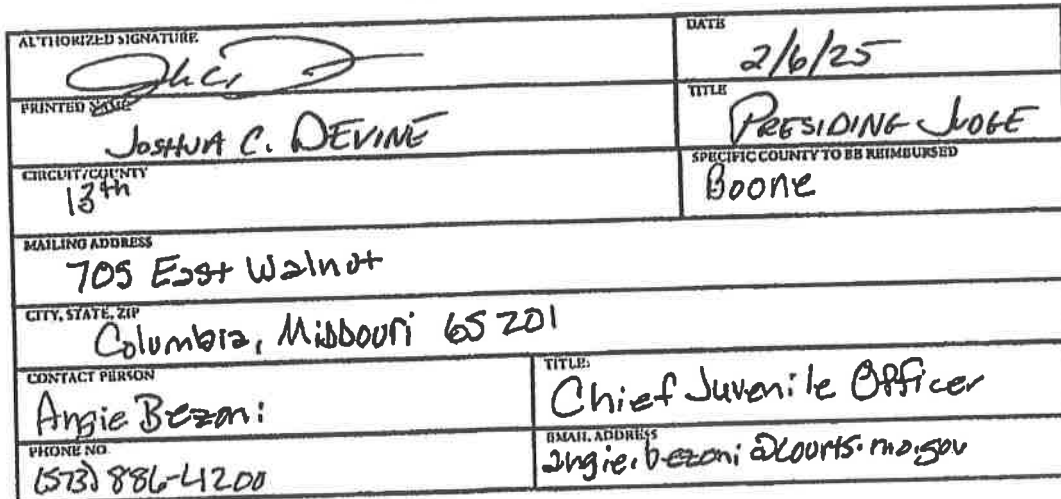 AUTHORIZED SIGNATURE
DATE
2/6/25
PRINTED NAME
JOSHUA C. DEVINE
TITLE
PRESIDING JUDGE
CIRCUIT/COUNTY
13th
SPECIFIC COUNTY TO BE REIMBURSED
Boone
MAILING ADDRESS
705 East Walnut
CITY, STATE, ZIP
Columbia, Missouri 65201
CONTACT PERSON
Angie Bezoni
TITLE:
Chief Juvenile Officer
PHONE NO.
(573) 886-4200
EMAIL ADDRESS
angie.bezoni@courts.mo.gov